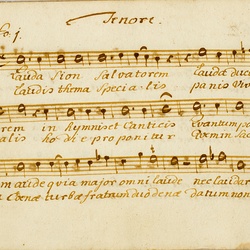 Tenore.
No: 1.
Lauda Sion Salvatorem Lauda duce
Laudis thema specialis panis viv
rem in hymnis et Canticis Quantum po
alis hodie proponitur
m a Laude quia major omni laude nec laudar
Coenae turbae fratrum duodenae datum non